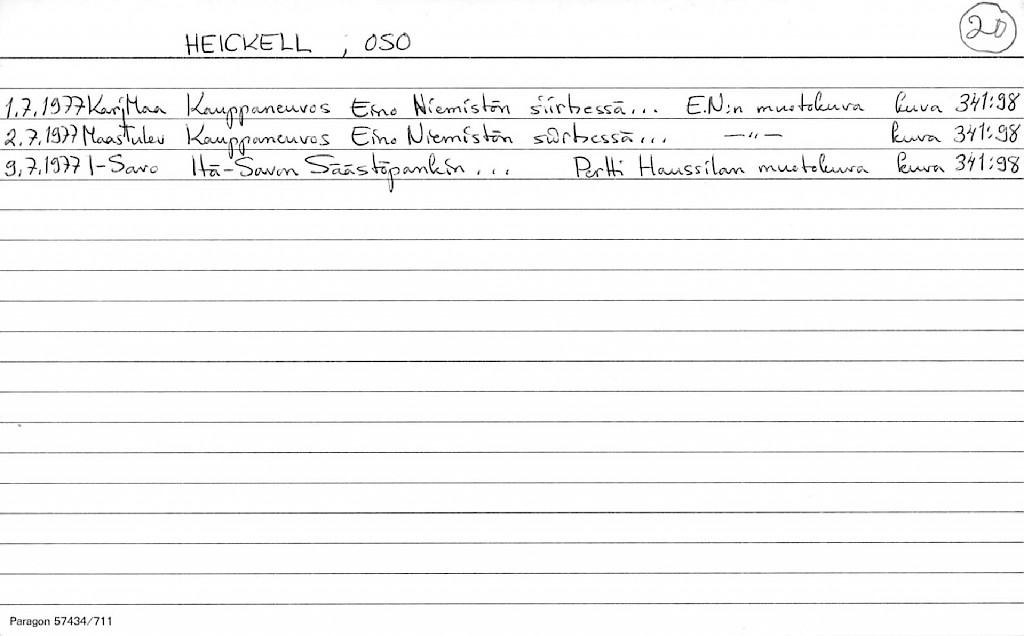 HEICKELL , OSO 20
1.7.1977 KarjMaa Kauppaneuvos Eino Niemistön siirtyessä... E.N:n muotokuva kuva 341:98
2.7.1977 MaasTulev Kauppaneuvos Eino Niemistön siirtyessä... —"— kuva 341:98
9.7.1977 I-Savo Itä-Savon Säästöpankin... Pertti Haussilan muotokuva kuva 341:98
Paragon 57434/711